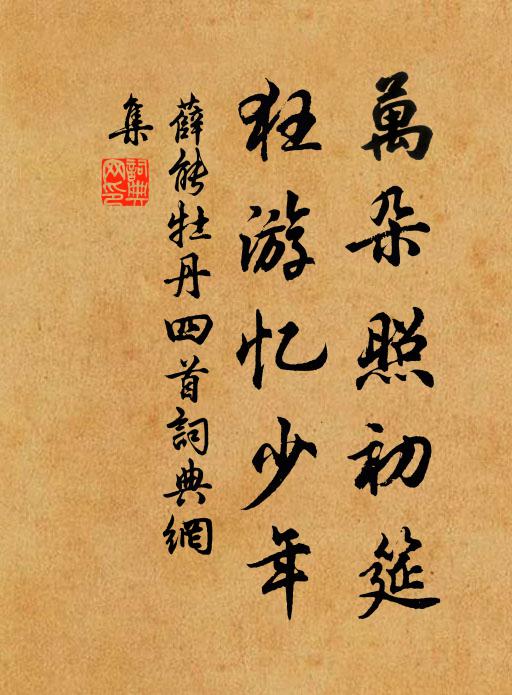 萬朵照初筵
狂游忆少年
薛能牡丹四首詞典網
集
詞典
网印